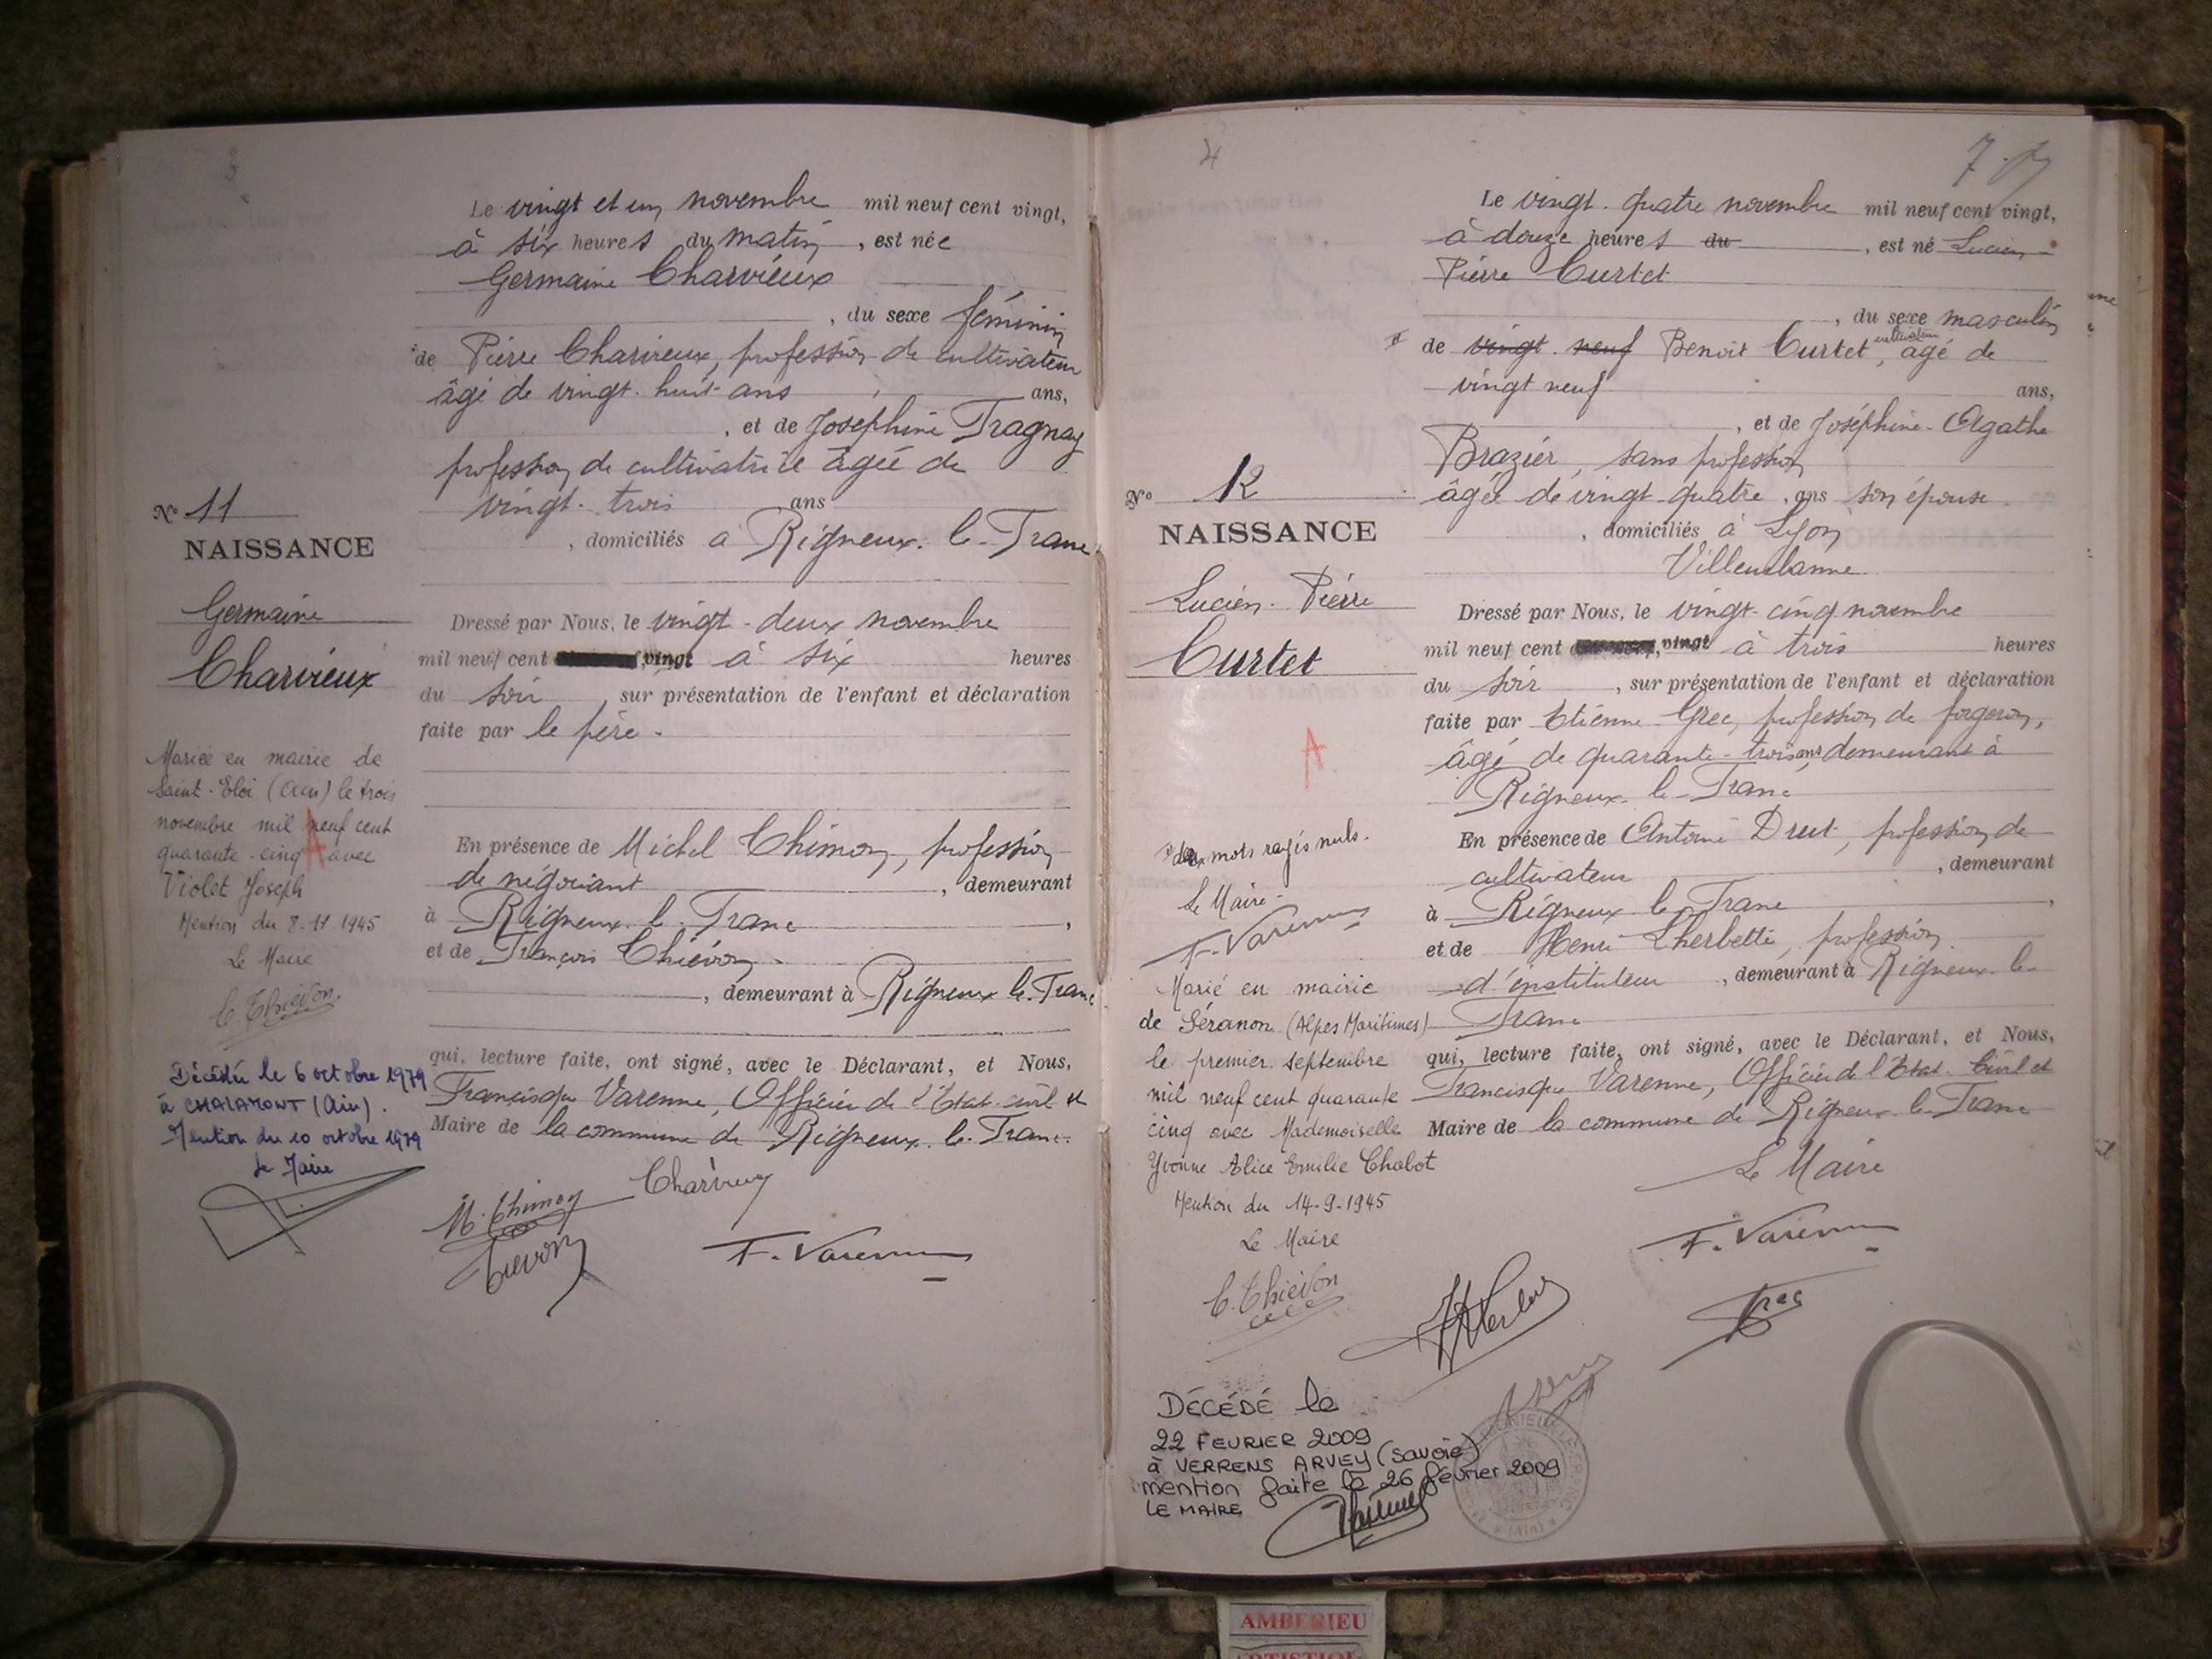 3
Le vingt et un novembre mil neuf cent vingt,
à six heures du matin, est née
Germaine Charvieux
, du sexe féminin
de Pierre Charvieux, profession de cultivateur
âgé de vingt-huit ans ans,
, et de Josephine Tragnay
profession de cultivatrice âgée de
vingt-trois ans
, domiciliés à Rigneux-le-Franc
Nº 11
NAISSANCE
Germaine
Charvieux
Dressé par Nous, le vingt-deux novembre
mil neuf cent vingt à six heures
du soir, sur présentation de l'enfant et déclaration
faite par le père-
Mariée en mairie de
Saint-Eloi (Ain) le trois
novembre mil neuf cent
quarante-cinq avec
Violet Joseph
Mention du 8-11-1945
Le Maire
C. Thiévon
A
Décédée le 6 octobre 1979
à CHALAMONT (Ain).
Mention du 10 octobre 1979
Le Maire
En présence de Michel Thimon, profession
de négociant, demeurant
à Rigneux-le-Franc,
et de François Thiévon
, demeurant à Rigneux le-Franc
qui, lecture faite, ont signé, avec le Déclarant, et Nous,
Francisque Varenne, Officier de l'Etat-civil et
Maire de la commune de Rigneux-le-Franc.
M. Thimon
Charvieux
F. Varenne
4
7
Le vingt-quatre novembre mil neuf cent vingt,
à douze heures du, est né Lucien-
Pierre Curtet
, du sexe masculin
de vingt-neuf Benoit Curtet, cultivateur âgé de
vingt neuf ans,
, et de Joséphine-Agathe
Brazier, sans profession
âgée de vingt-quatre ans son épouse
, domiciliés à Lyon
Villeurbanne
Nº 12
NAISSANCE
Lucien-Pierre
Curtet
A
Dressé par Nous, le vingt-cinq novembre
mil neuf cent vingt à trois heures
du soir, sur présentation de l'enfant et déclaration
faite par Etienne Grec, profession de forgeron,
âgé de quarante-trois ans, demeurant à
Rigneux-le-Franc
En présence de Antoine Drut, profession de
cultivateur, demeurant
à Rigneux le Franc,
et de Henri Lherbette, profession
d'instituteur, demeurant à Rigneux-le-
Franc
qui, lecture faite, ont signé, avec le Déclarant, et Nous,
Francisque Varenne, Officier de l'Etat-Civil et
Maire de la commune de Rigneux-le-Franc
Le Maire
F. Varenne
Grec
deux mots rayés nuls-
Le Maire-
F. Varenne
Marié en mairie
de Séranon (Alpes Maritimes)
le premier septembre
mil neuf cent quarante
cinq avec Mademoiselle
Yvonne Alice Emilie Chabot
Mention du 14-9-1945
Le Maire
C. Thiévon
DÉCÉDÉ le
22 FEVRIER 2009
à VERRENS ARVEY (Savoie)
mention faite le 26 février 2009
LE MAIRE
AMBERIEU